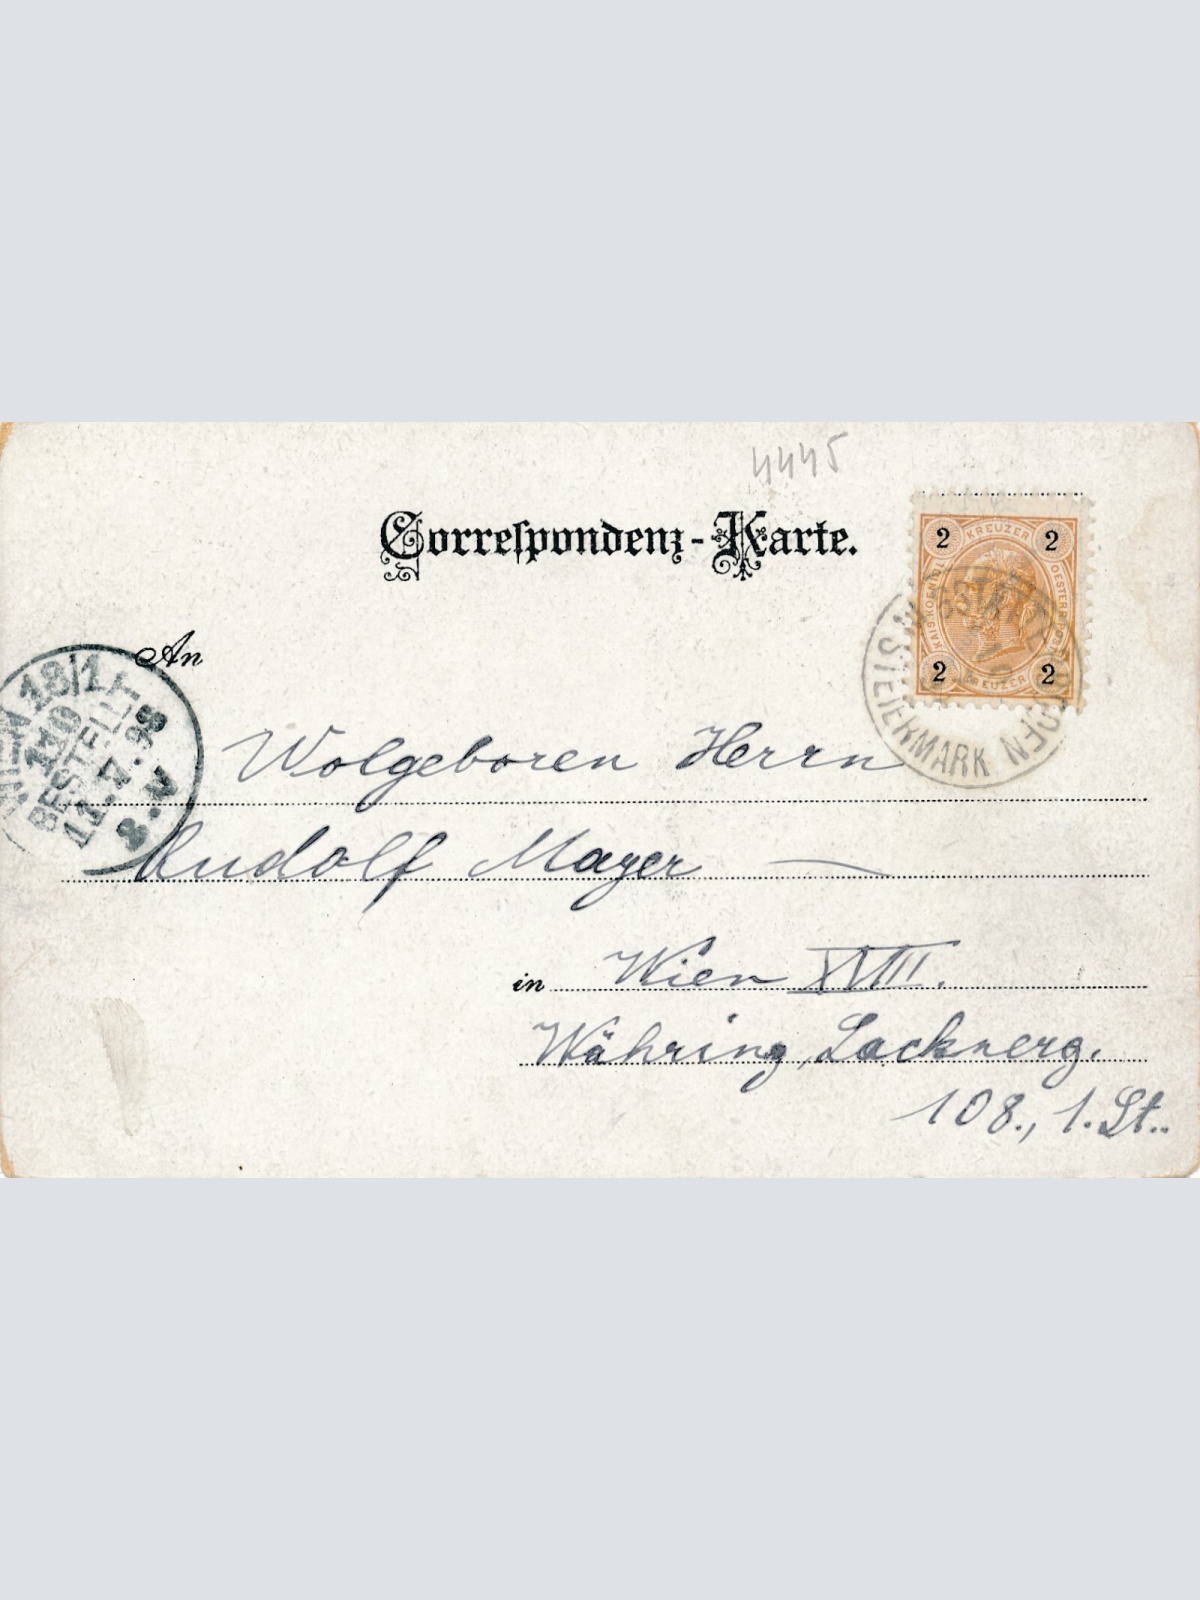 4445
Correspondenz-Karte.
2 KREUZER 2
2 KREUZER 2
STEIERMARK
An
WIEN 18/1
110
BESTELLT
11.7.98
8.V
Wolgeboren Herrn
Rudolf Mayer
in Wien XVIII.
Währing, Lacknerg.
108., 1. St..